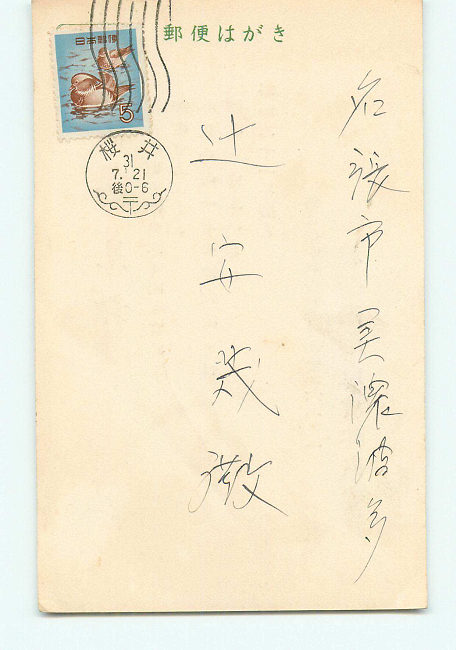 郵便はがき
日本郵便
5
桜井
31
7.21
後0-6
名張市美濃波多
辻安茂